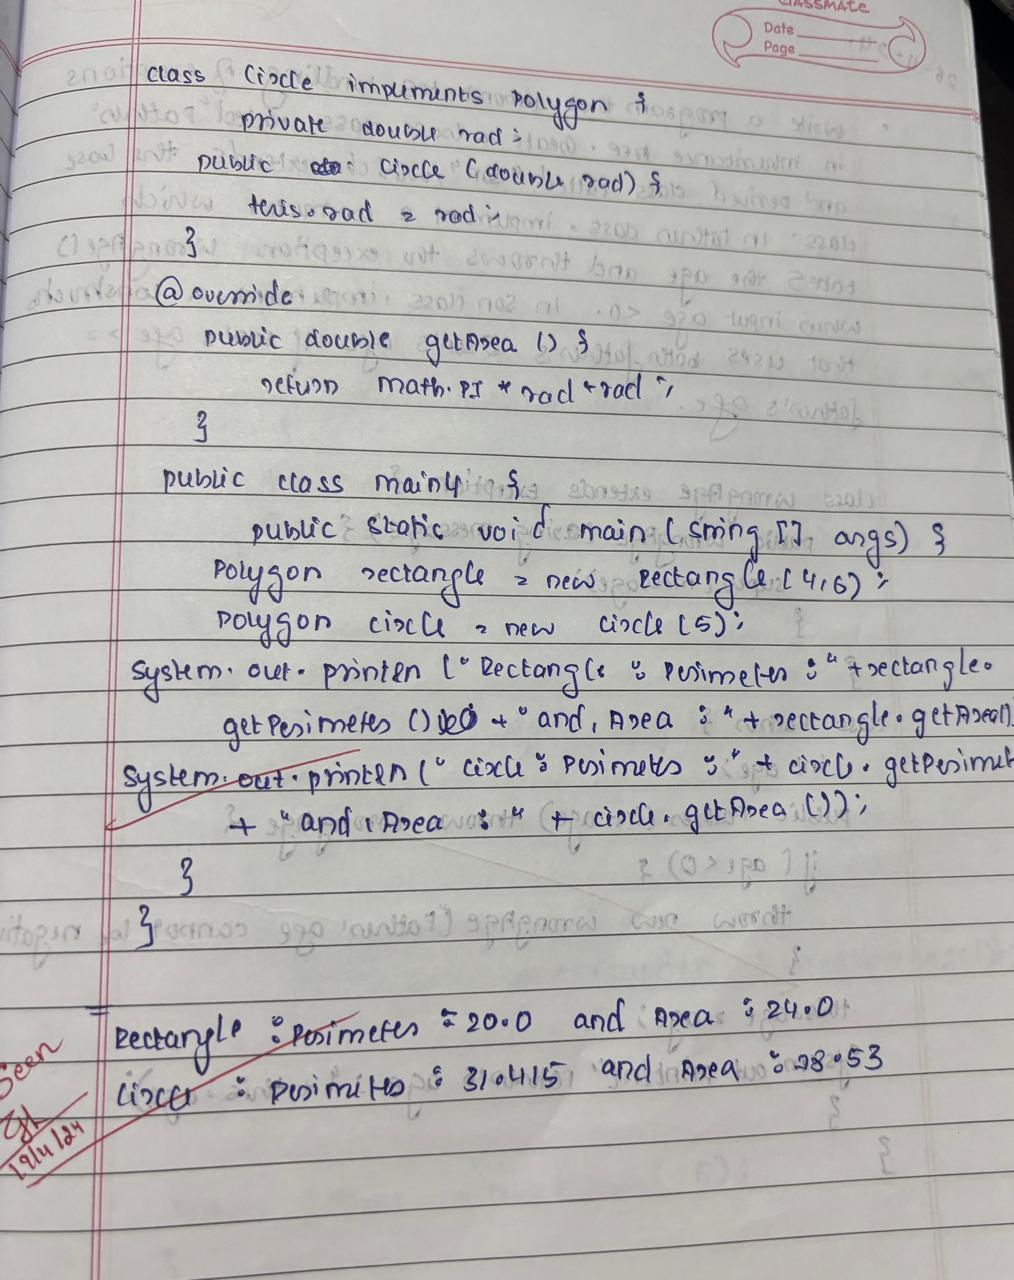 CLASSMATE
Date
Page
class Circle implements Polygon {
private double rad ;
public circle (double rad) {
this.rad = rad ;
}
@ override
public double getArea () {
return math.PI * rad * rad ;
}
public class main4 {
public static void main (String [] args) {
Polygon rectangle = new Rectangle (4,6) ;
Polygon circle = new circle (5) ;
System.out.println (" Rectangle : Perimeter : " + rectangle.
getPerimeter () + " and, Area : " + rectangle.getArea()
System.out.println (" circle : Perimeter : " + circle.getPerimet
+ " and, Area : " + circle.getArea ()) ;
}
}
Rectangle : Perimeter = 20.0 and Area : 24.0
Circle : Perimiter : 31.415 and Area : 78.53
Seen
19/4/24